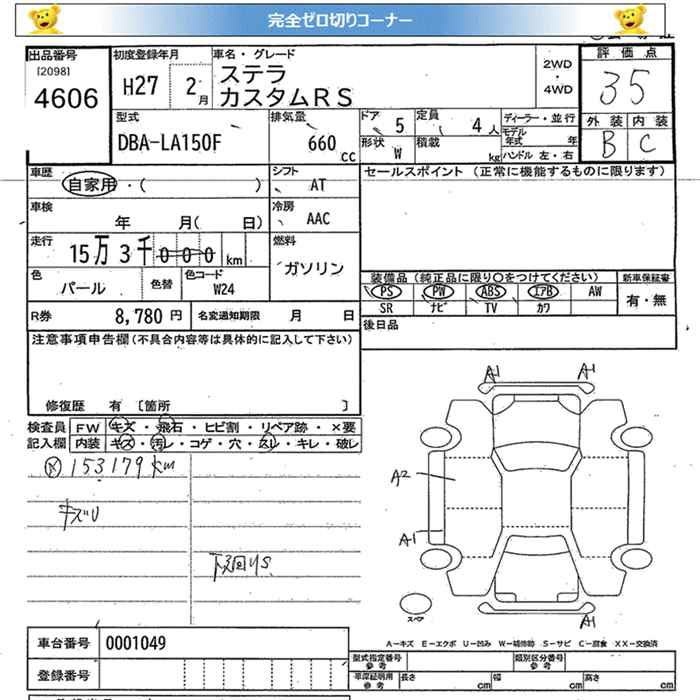 完全ゼロ切りコーナー
出品番号 初度登録年月 車名・グレード 評価点
[2098]
4606 H27 2月 ステラ 2WD 35
カスタムRS 4WD
型式 排気量 ドア 5 定員 4人 ディーラー・並行 外装 内装
DBA-LA150F 660cc 形状 W 積載 kg モデル年式 年 B C
ハンドル 左・右
車歴 自家用・( ) シフト AT セールスポイント (正常に機能するものに限ります)
車検 年 月( 日) 冷房 AAC
走行 15万3千000km 燃料 ガソリン
色 パール 色替 色コード W24 装備品 (純正品に限り○をつけてください) 新車保証書
PS PW ABS エアB AW 有・無
R券 8,780円 名変通知期限 月 日 SR ナビ TV カワ
注意事項申告欄(不具合内容等は具体的に記入して下さい) 後日品
修復歴 有 [箇所 ]
検査員 FW キズ・飛石・ヒビ割・リペア跡・×要
記入欄 内装 キズ・汚レ・コゲ・穴・スレ・キレ・破レ
153179km
キズU
下廻りS
A1 A1
A2
A1
スペア A1
A-キズ E-エクボ U-凹み W-補修跡 S-サビ C-腐食 XX-交換済
車台番号 0001049 型式指定番号 参考 類別区分番号 参考
登録番号 車庫証明用 参考 長さ cm 幅 cm 高さ cm